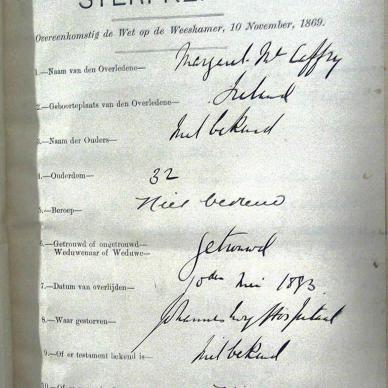 Overeenkomstig de Wet op de Weeshamer, 10 November, 1869.
1.—Naam van den Overledene— Margaret Mc Caffry
2.—Geboorteplaats van den Overledene— Ireland
3.—Naam der Ouders— Niet bekend
4.—Ouderdom— 32
5.—Beroep— Niet
6.—Getrouwd of ongetrouwd— Getrouwd
Weduwenaar of Weduwe—
7.—Datum van overlijden— 10den Mei 1893.
8.—Waar gestorven— Johannesburg Hospitaal
9.—Of er testament bekend is— Niet bekend